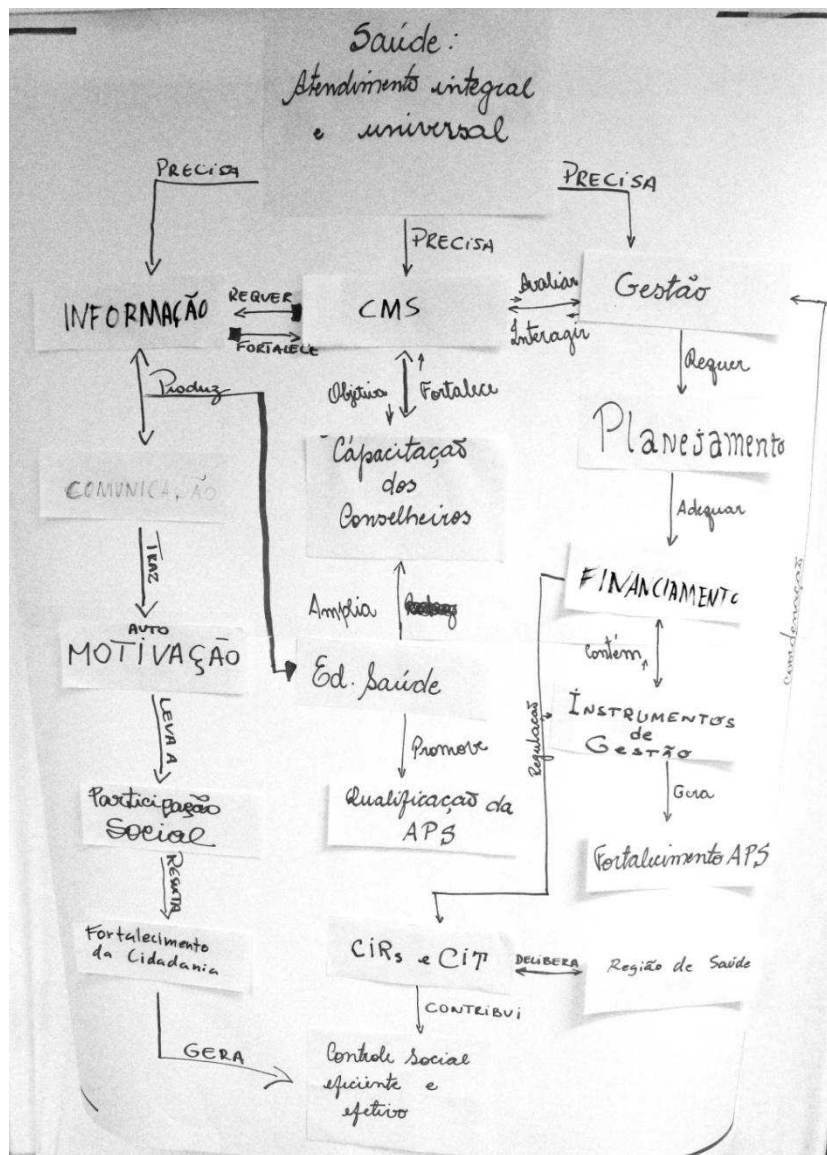 Saúde:
Atendimento integral
e universal
PRECISA
PRECISA
PRECISA
INFORMAÇÃO
REQUER
FORTALECE
CMS
Avaliar
Interagir
Gestão
Produz
Objetiva
Fortalece
Requer
COMUNICAÇÃO
Capacitação
dos
Conselheiros
Planejamento
TRAZ
Adequar
Amplia
FINANCIAMENTO
Coordenação
AUTO
MOTIVAÇÃO
Ed. Saúde
Contém
Regulacaó
LEVA A
Promove
INSTRUMENTOS
de
GESTÃO
Participação
Social
Qualificação da
APS
Gera
Fortalecimento APS
Fortalecimento
da Cidadania
CIRs e CIT
DELIBERA
Região de Saúde
CONTRIBUI
GERA
Controle Social
eficiente e
efetivo